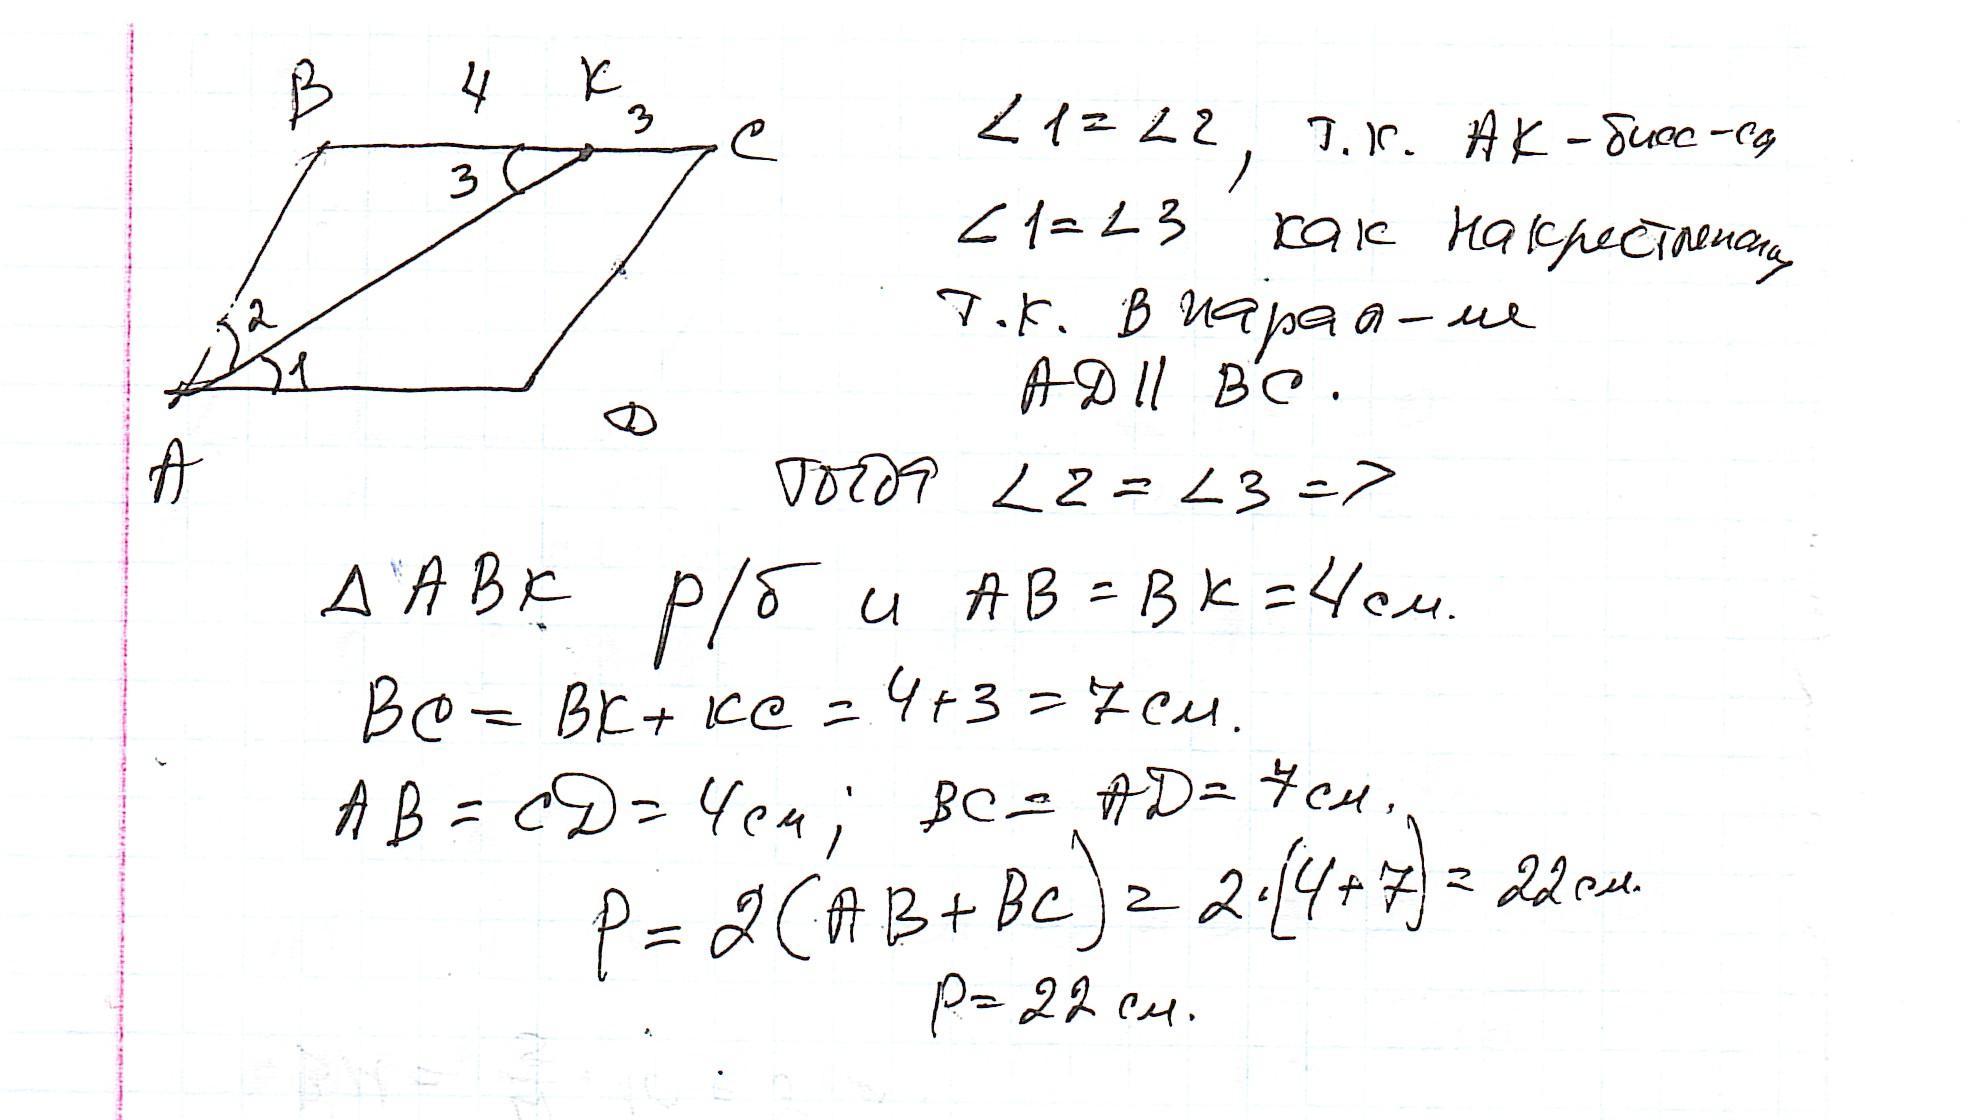 B 4 K 3 C
3
2
1
D
A
∠1=∠2, т.к. AK-бисс-са
∠1=∠3 как накрестлежащ,
т.к. в парал-ме
AD||BC.
тогда ∠2=∠3=>
Δ ABK р/б и AB=BK=4см.
BC=BK+KC=4+3=7см.
AB=CD=4см; BC=AD=7см.
P=2(AB+BC)=2·(4+7)=22см.
P=22см.